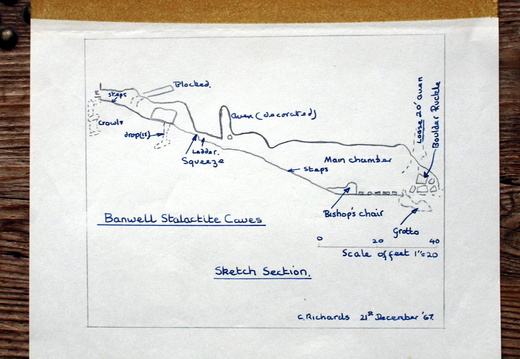 Blocked.
steps
crawls
drop(15)
Ladder.
Squeeze
Aven (decorated)
Loose 20' aven
Boulder Ruckle
Main chamber
steps
Bishop's chair
Grotto
Banwell Stalactite Caves
0 20 40
Scale of feet 1"=20
Sketch Section.
C. Richards 21st December '67.